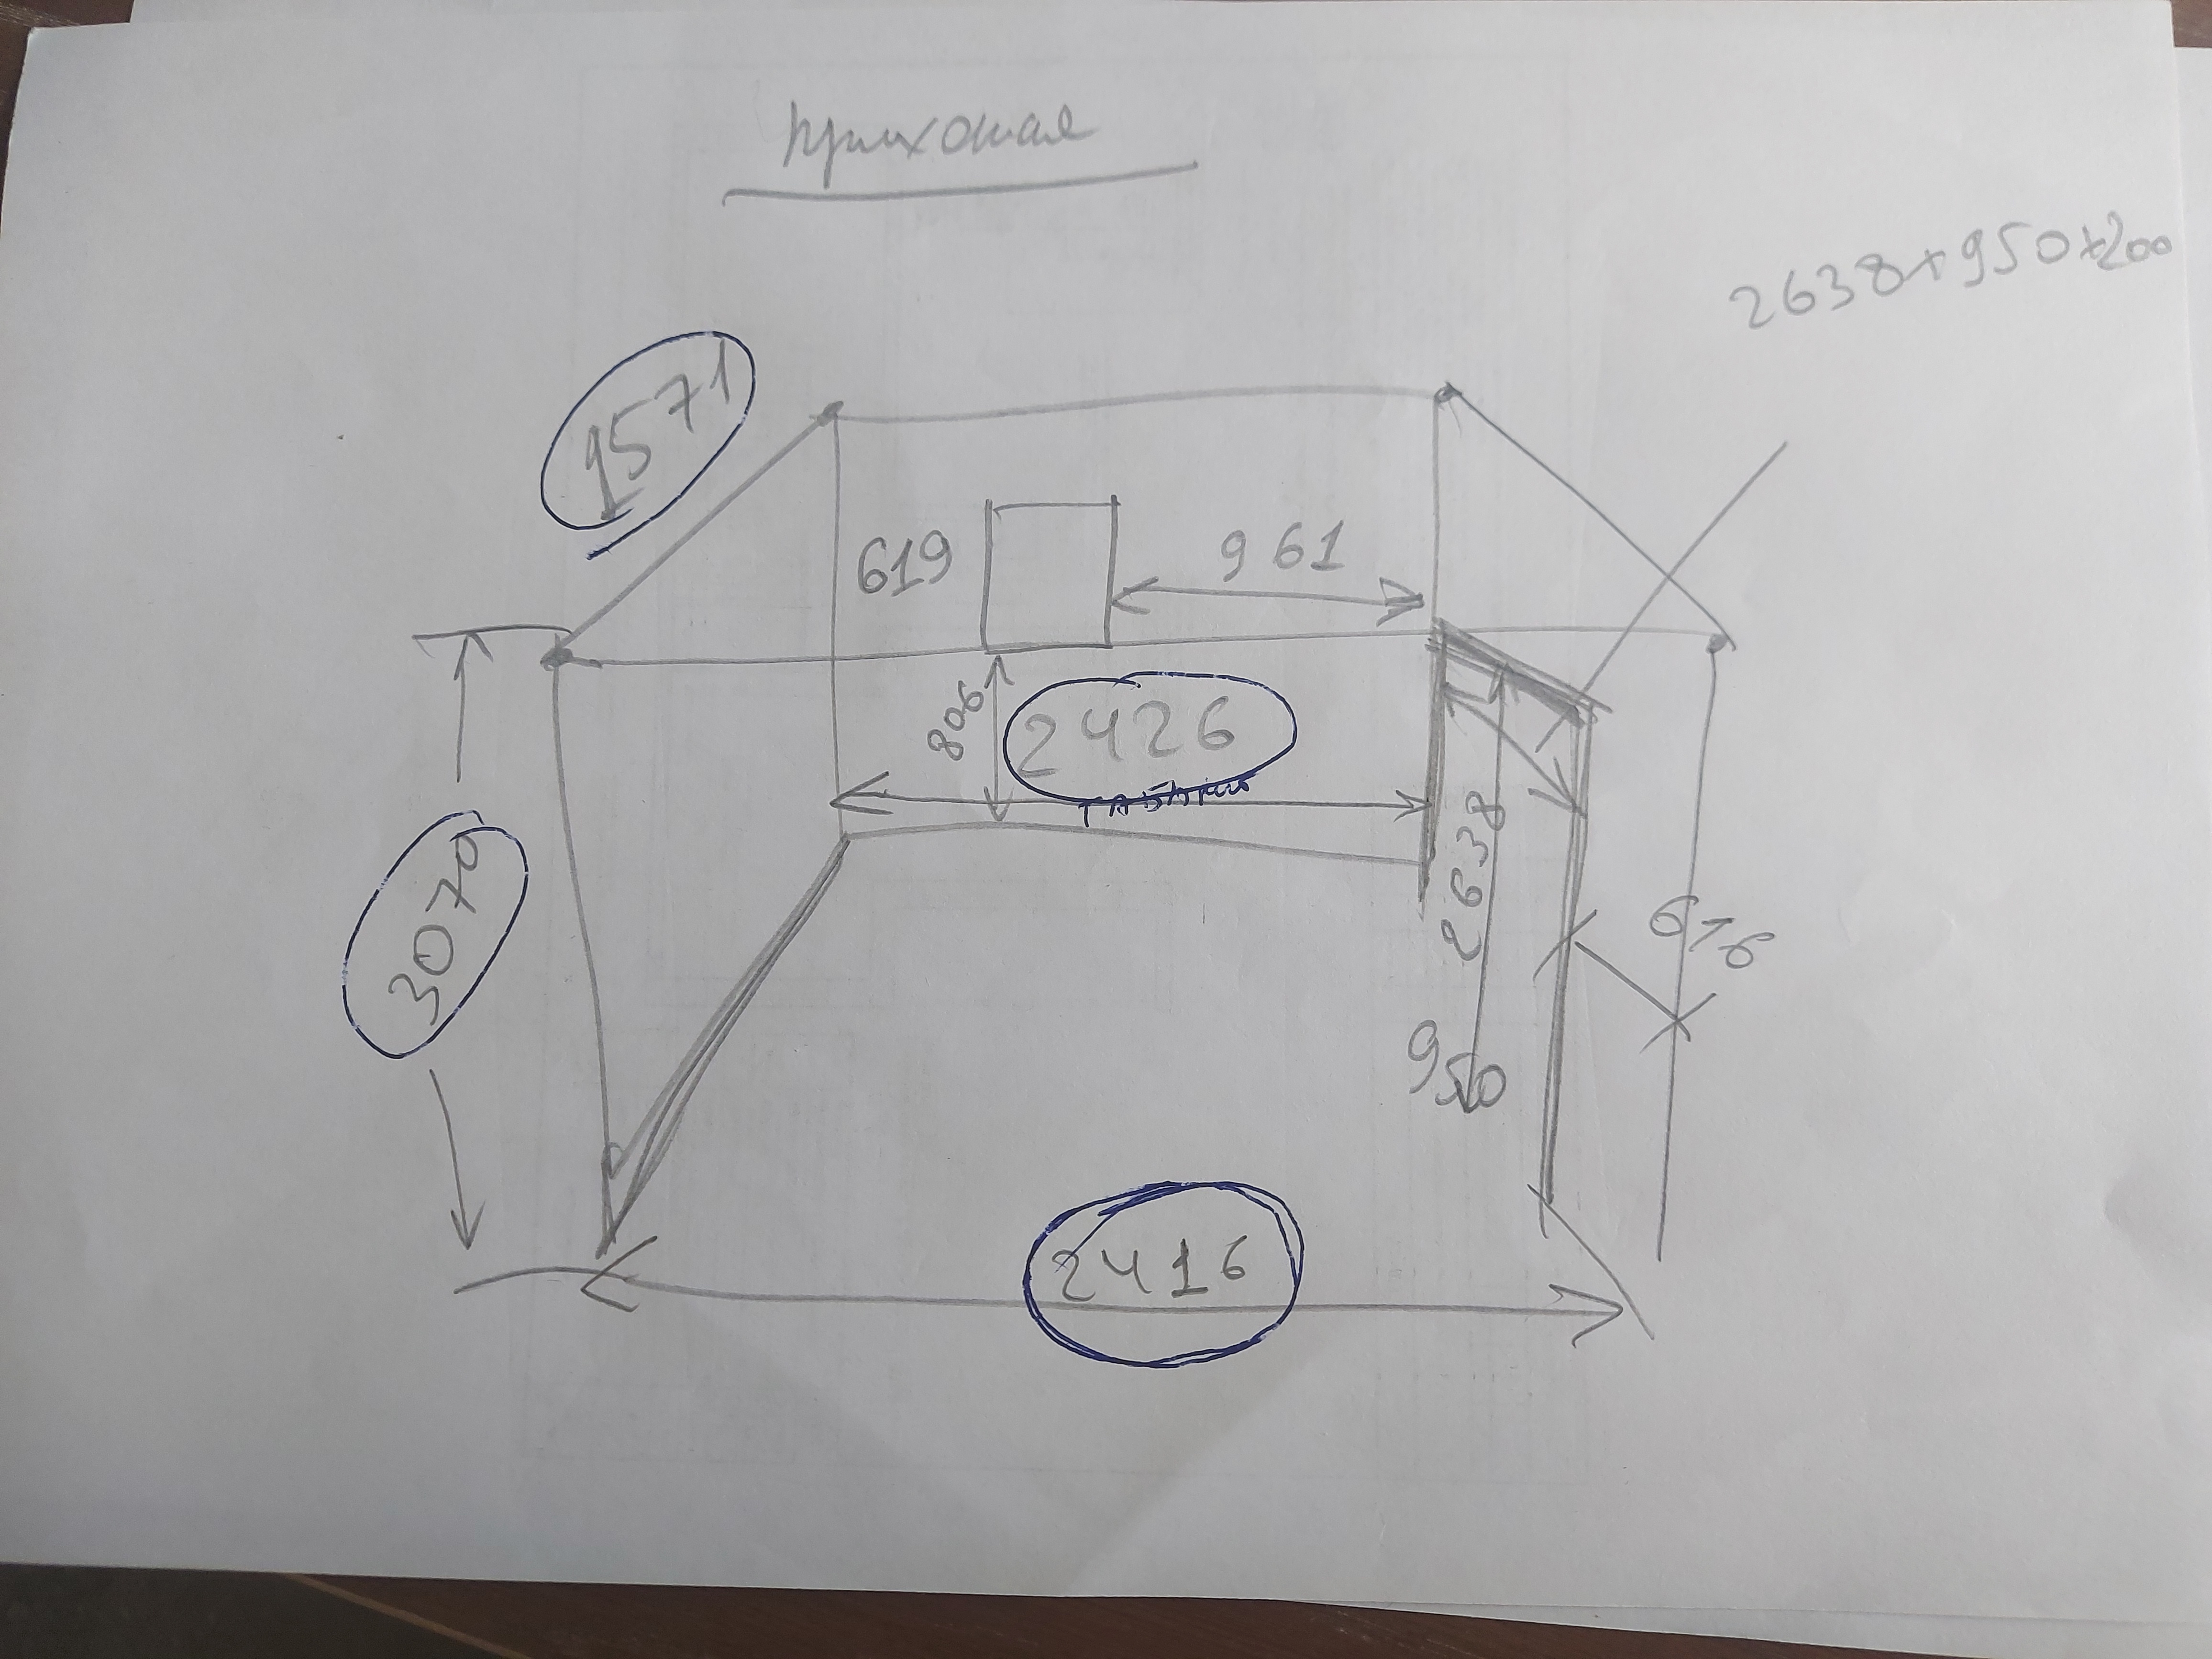 прихожая
2638x950x200
1571
619
961
806
2426
габарит
3070
2638
616
950
2416